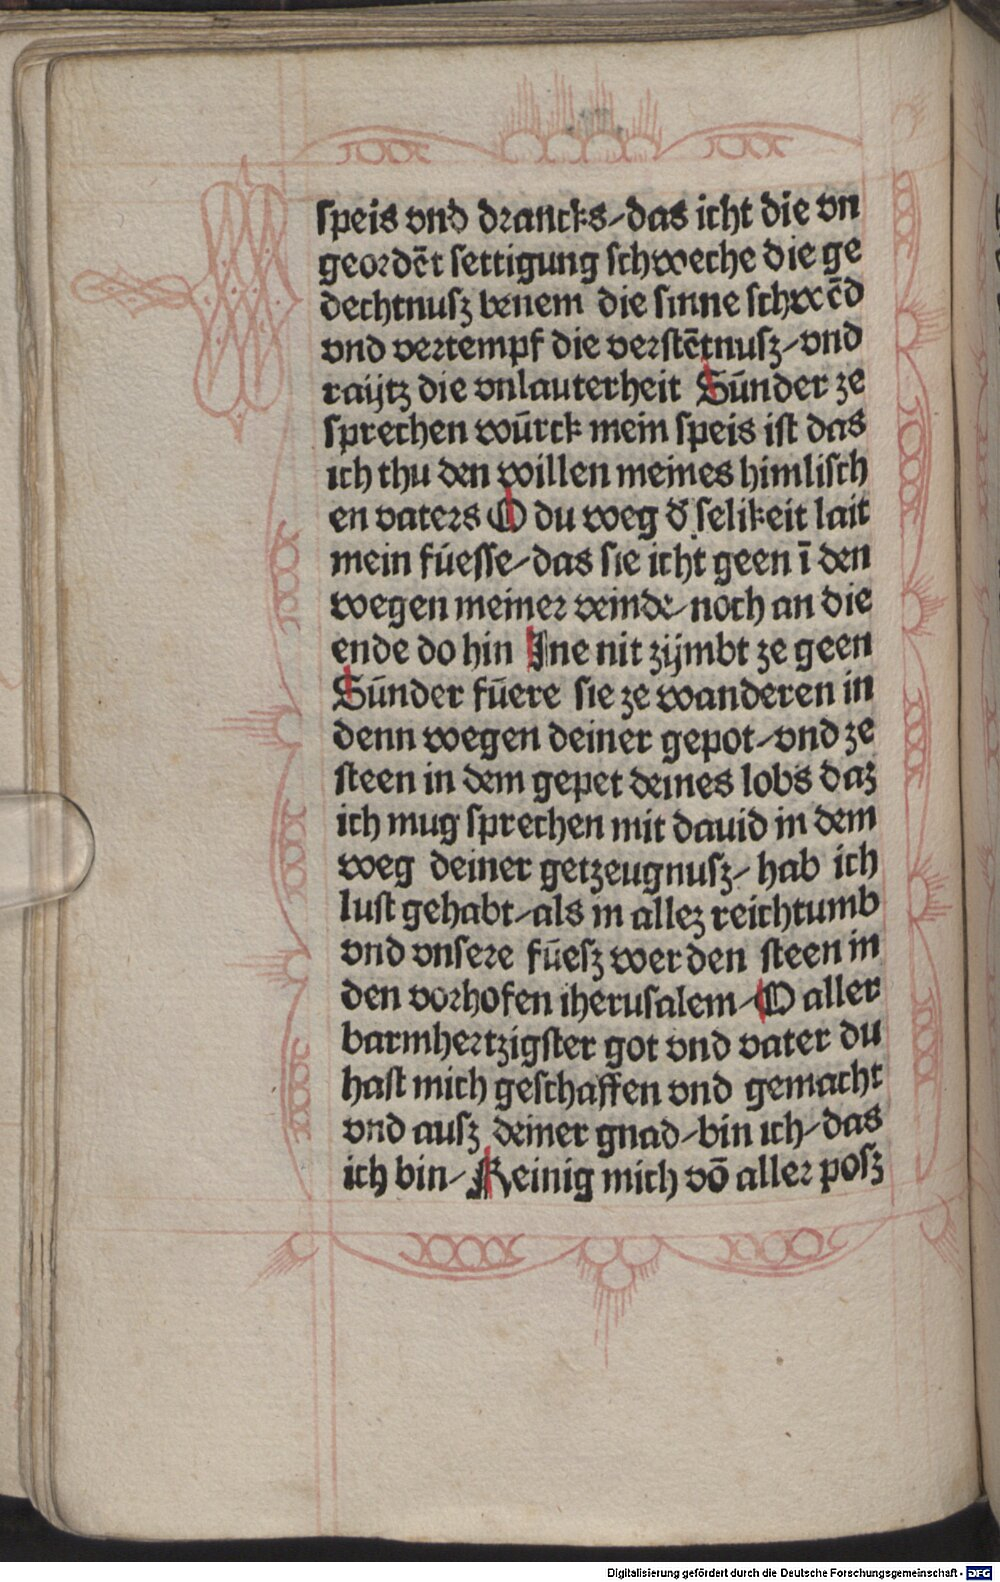 speis vnd drancks-das icht die vn
geordēt settigung schweche die ge
dechtnusz benem die sinne schwēd
vnd vertempf die verstētnusz-vnd
raijtz die vnlauterheit Sūnder ze
sprechen wūrck mein speis ist das
ich thu den willen meines himlisch
en vaters O du weg d̄ selikeit lait
mein fúesse-das sie icht geen ī den
wegen meiner veinde-noch an die
ende do hin Ine nit zijmbt ze geen
Sūnder fūere sie ze wanderen in
denn wegen deiner gepot-vnd ze
steen in dem gepet deines lobs daz
ich mug sprechen mit dauid in dem
weg deiner getzeugnusz-hab ich
lust gehabt-als in allez reichtumb
vnd vnsere fūesz werden steen in
den vorhofen iherusalem-O aller
barmhertzigster got vnd vater du
hast mich geschaffen vnd gemacht
vnd ausz deiner gnad-bin ich-das
ich bin-Reinig mich vō aller posz
Digitalisierung gefördert durch die Deutsche Forschungsgemeinschaft - DFG